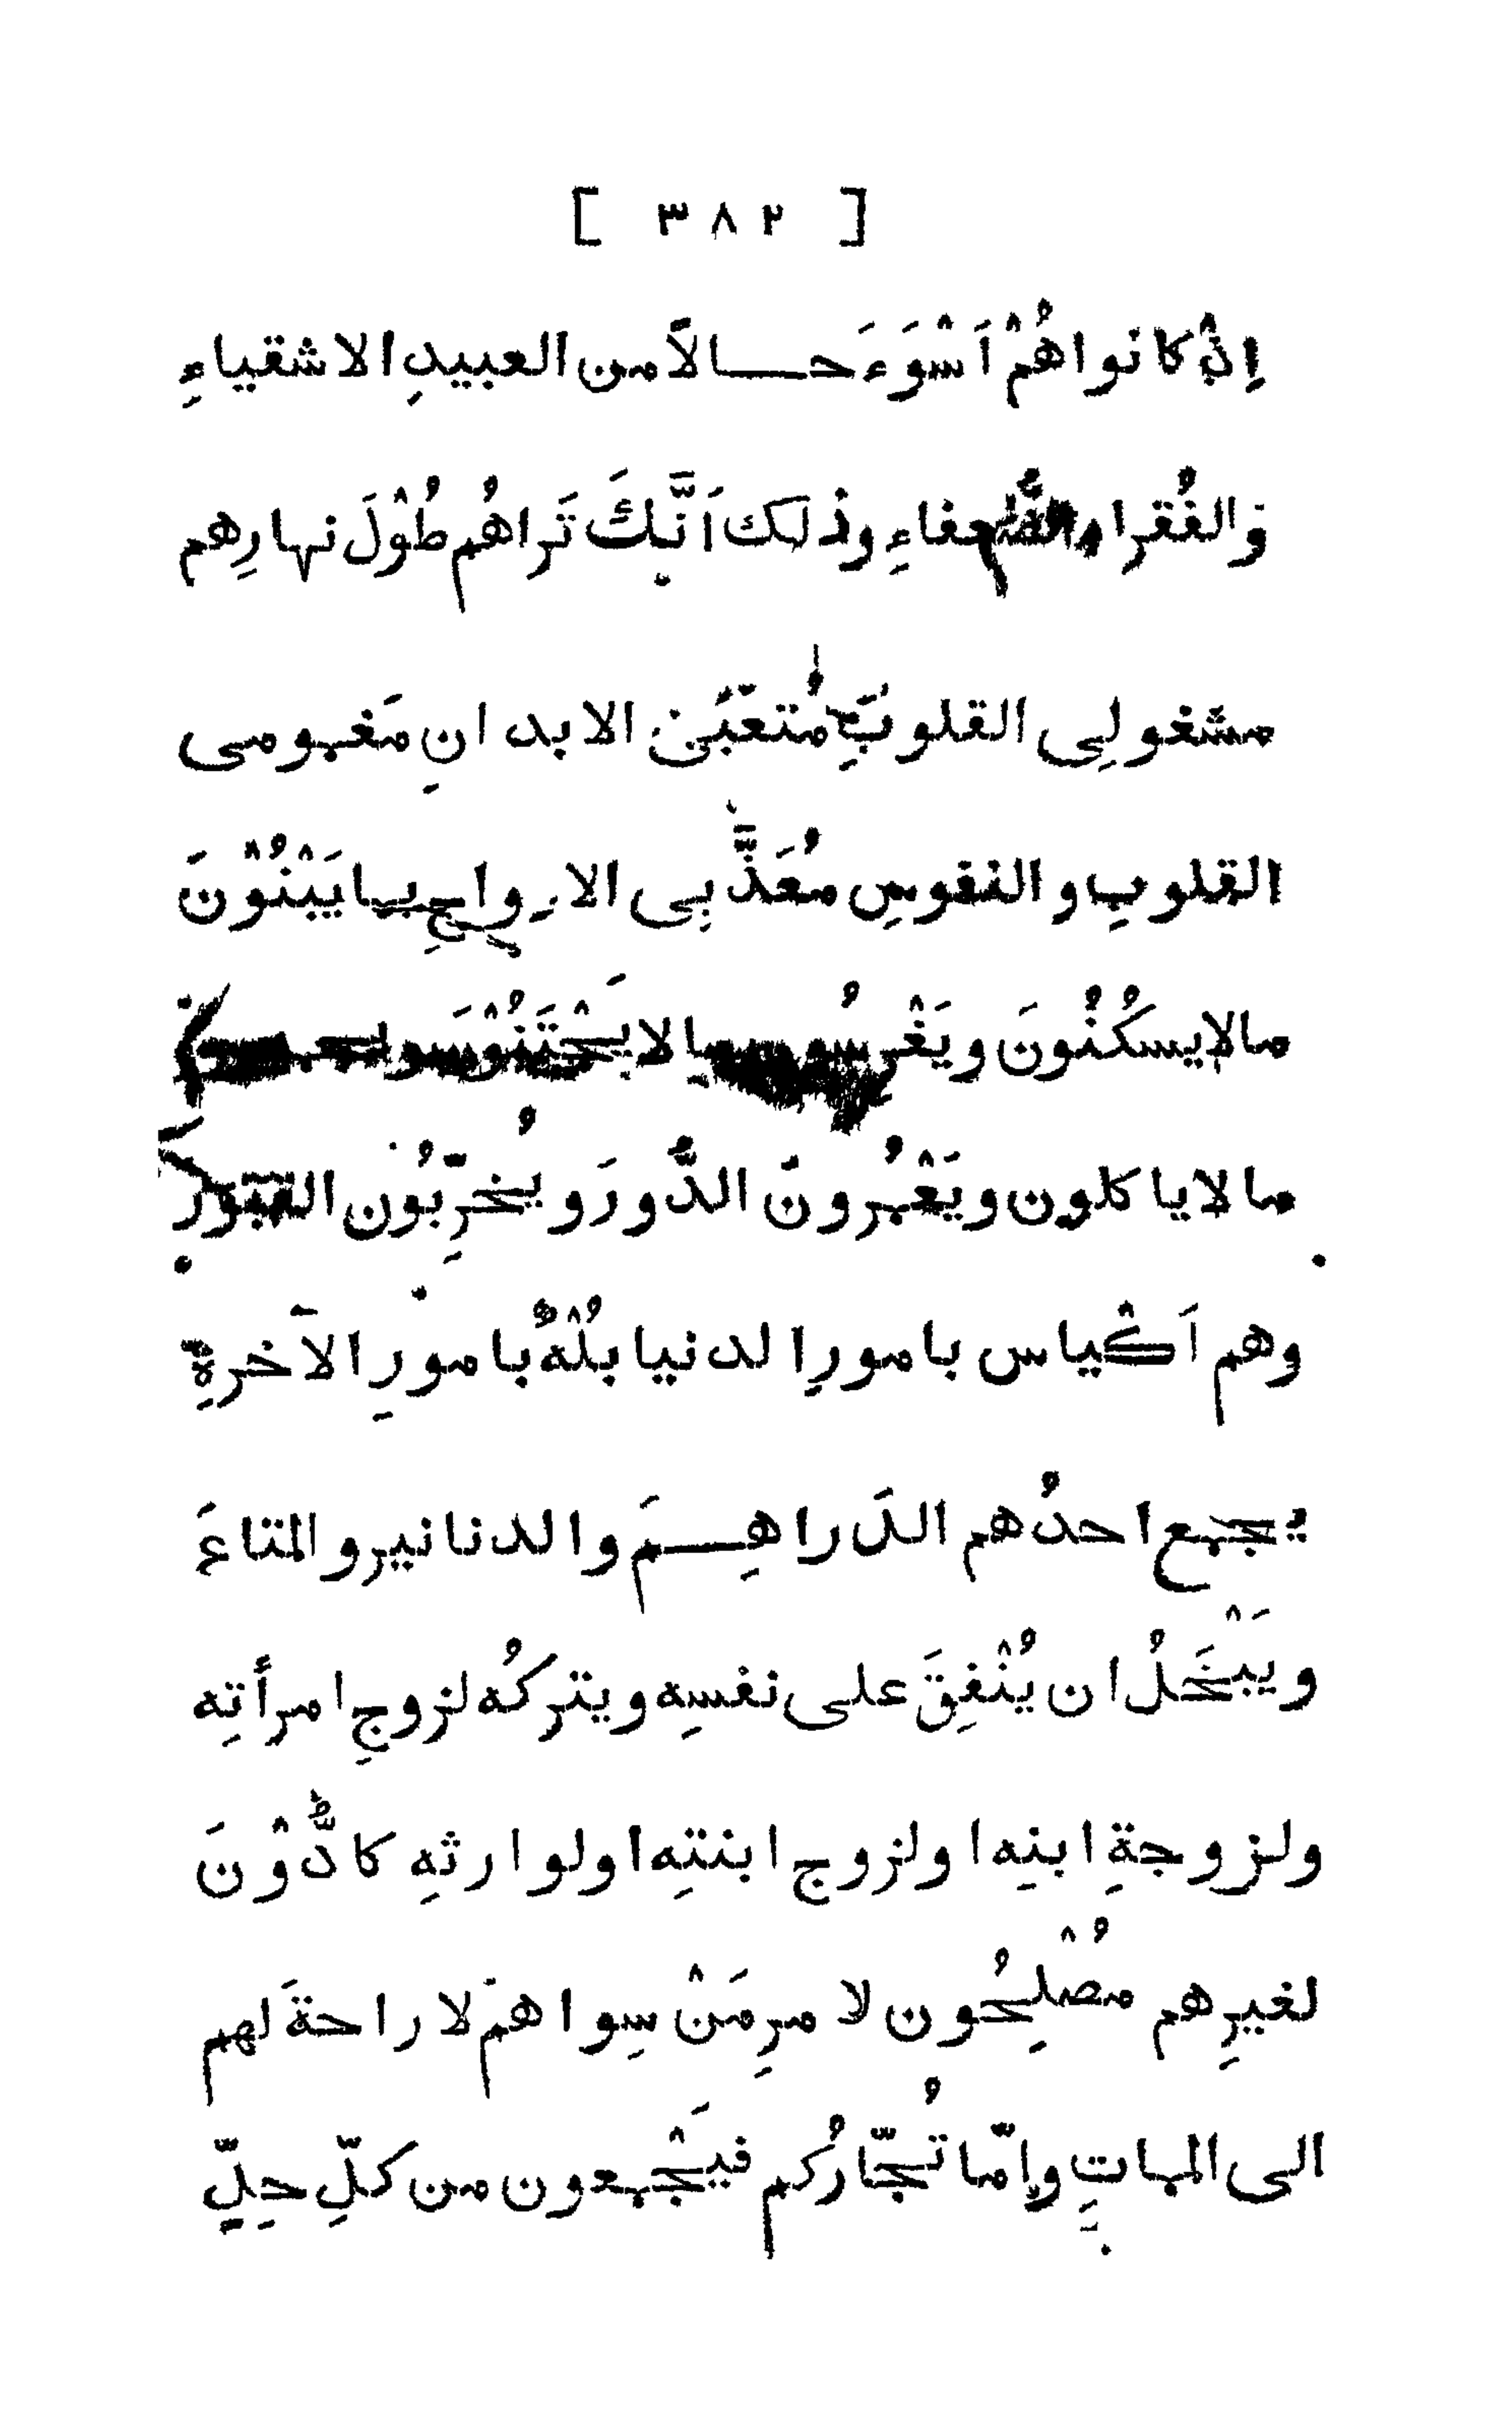 [ ٣٨٢ ]
اِذْ كانوا هُمْ اَسْوَءَ حالاً من العبيدِ الاشقياءِ
وَالفُقراء والضُّعفاءِ وذلك اَنَّكَ تَراهُم طُوْلَ نهارِهم
مشغولِى القلوبِ مُتعَبَىْ الابدانِ مَغمومى
القلوبِ والنفوسِ مُعَذَّبِى الارواحِ بما يَبْنُوْنَ
مالايسكُنُونَ ويَغْرِسُون مالا يَجْتَنُوْنَ
مالاياكلون ويَعْمُرونَ الدُّورَ ويُخرِّبُون القبورَ
وهم اَكْياس بامورِ الدنيا بُلْهٌ بامورِ الآخرةِ
يجمع احدُهم الدَراهِمَ والدنانير والمتاعَ
ويَبْخَلُ ان يُنْفِقَ على نفسِه ويتركُه لزوجِ امرأتِه
ولزوجةِ ابنِه اولزوج ابنتِه اولوارثِه كادُّوْنَ
لغيرِهم مُصْلِحُون لامرِ مَنْ سِواهم لا راحةَ لهم
الى المماتِ وامّا تُجّارُكم فيَجْمعون من كلِّ حِلٍّ